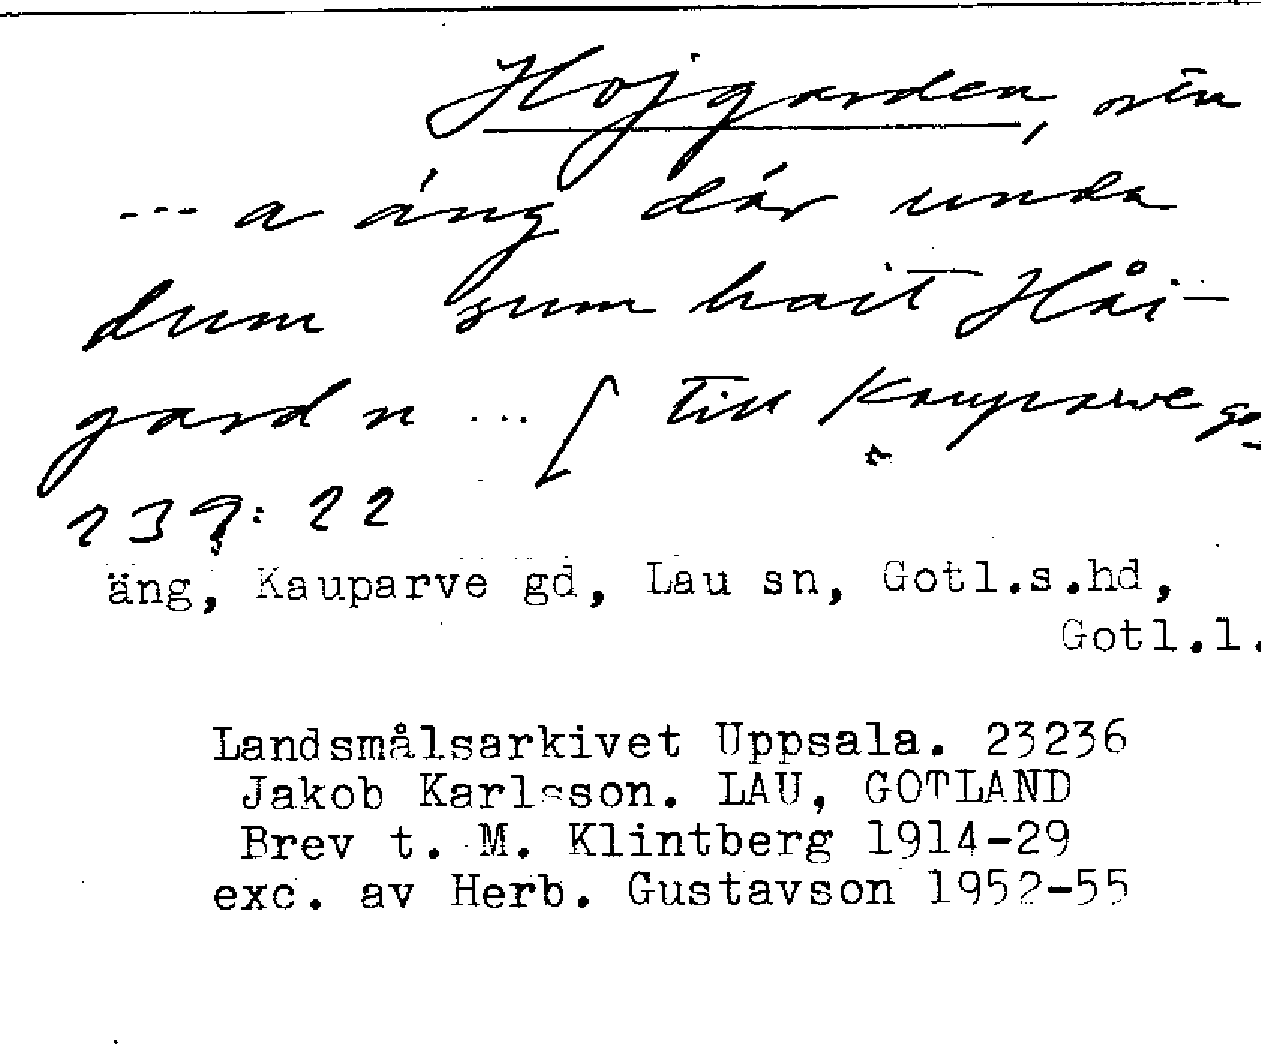 Hojgarden,
--- a áng dár unda
dum sum hait Håi-
gard n ... [ till Kauparve
239: 22
äng, Kauparve gd, Lau sn, Gotl.s.hd,
Gotl.l.
Landsmålsarkivet Uppsala. 23236
Jakob Karlsson. LAU, GOTLAND
Brev t. M. Klintberg 1914-29
exc. av Herb. Gustavson 1952-55